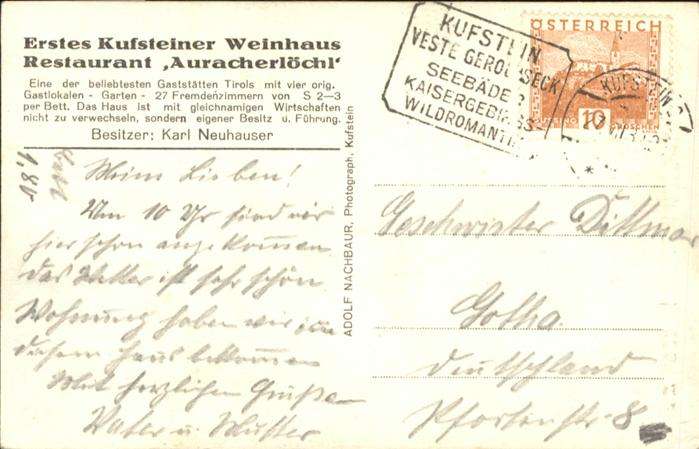 Erstes Kufsteiner Weinhaus
Restaurant ‚Auracherlöchl‘
Eine der beliebtesten Gaststätten Tirols mit vier orig.
Gastlokalen - Garten - 27 Fremdenzimmern von S 2—3
per Bett. Das Haus ist mit gleichnamigen Wirtschaften
nicht zu verwechseln, sondern eigener Besitz u. Führung.
Besitzer: Karl Neuhauser
Meine Lieben!
Um 10 Uhr sind wir
hier schon angekommen
das Wetter ist sehr schön
Wohnung haben wir in
diesem Haus bekommen
Mit herzlichen Grüßen
Vater u. Mutter
ADOLF NACHBAUR, Photograph, Kufstein
KUFSTEIN
VESTE GEROLDSECK
SEEBÄDER
KAISERGEBIRGS-
WILDROMANTIK
ÖSTERREICH
10
GROSCHEN
KUFSTEIN
Geschwister Dittmar
Gotha
Deutschland
Pfortenstr 8